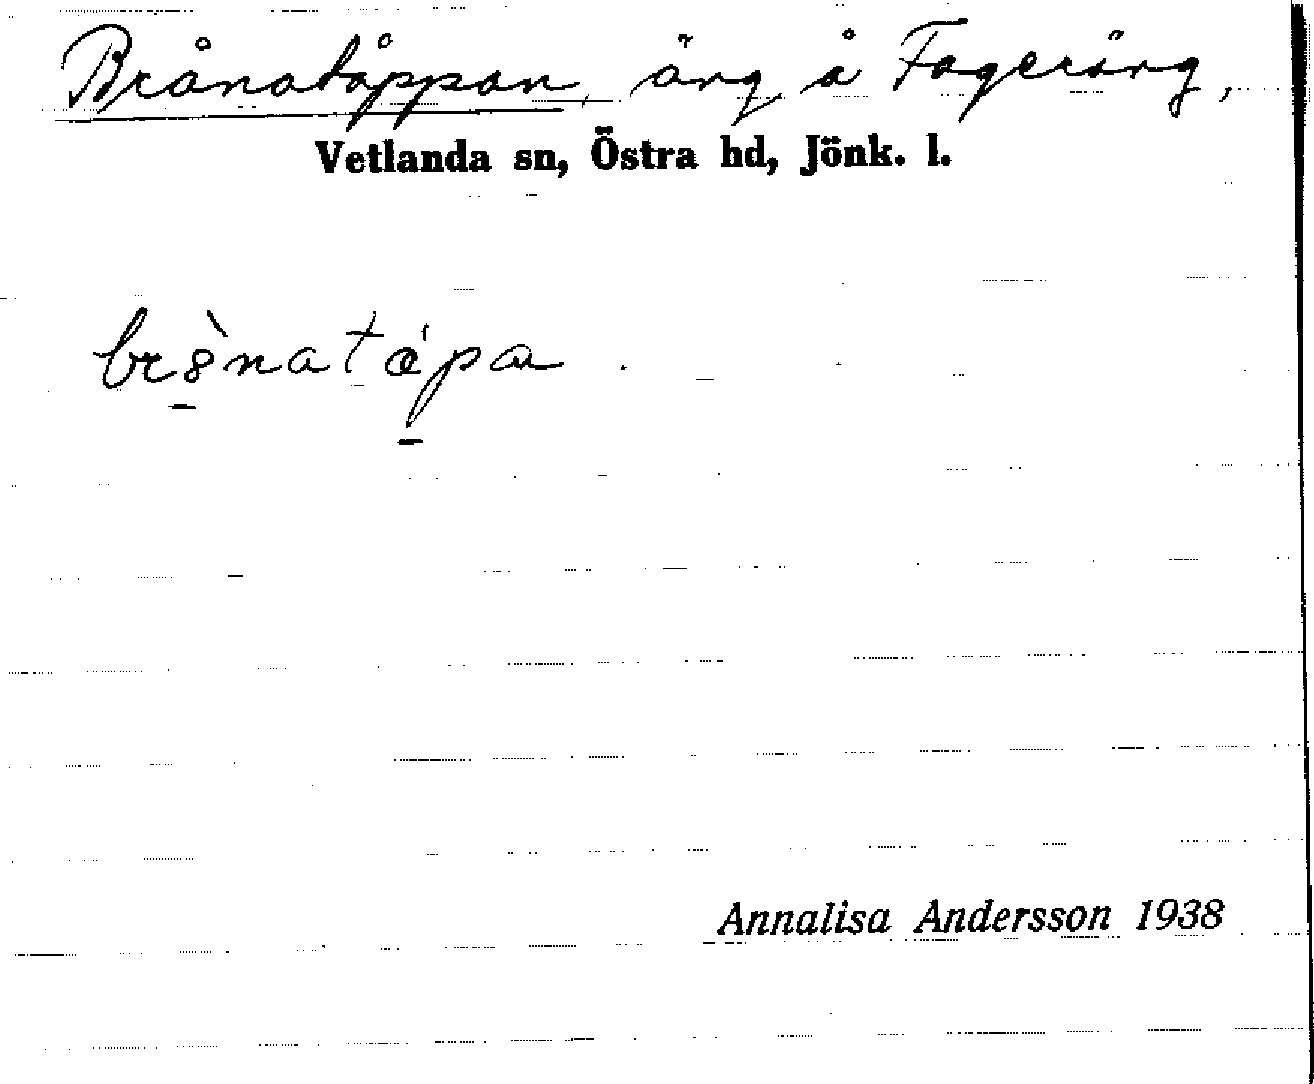 Brånatåppan, äng å Fageräng,
Vetlanda sn, Östra hd, Jönk. l.
Annalisa Andersson 1938